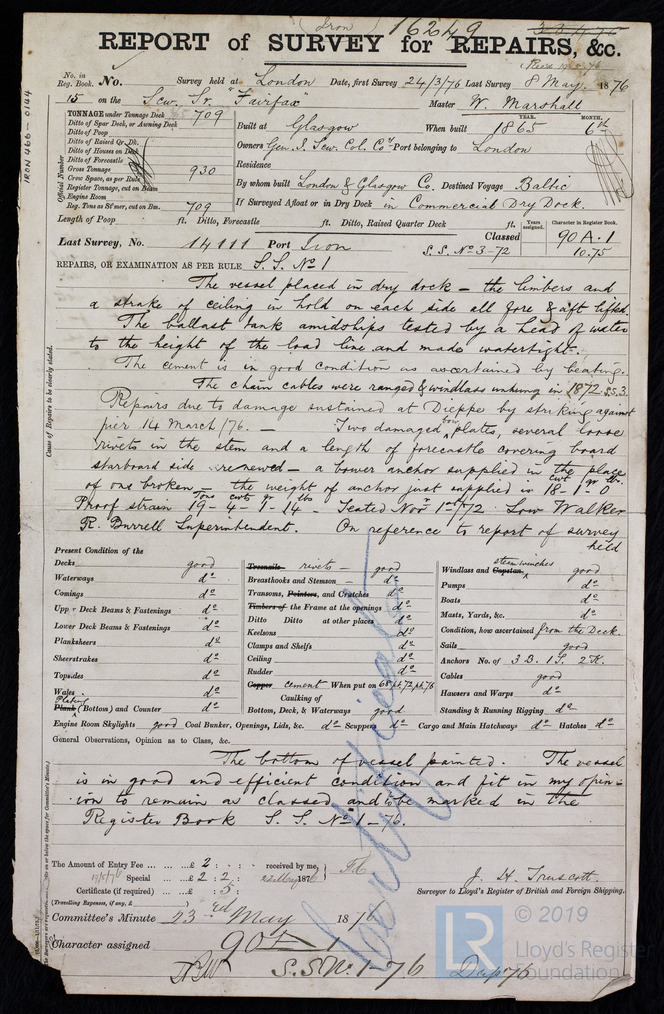 (Iron) 16249
REPORT of SURVEY for REPAIRS, &c.
No. in Reg. Book. No. Survey held at London Date, first Survey 24/3/76 Last Survey 8 May. 1876
15 on the Scw. Sr. "Fairfax Master W. Marshall
TONNAGE under Tonnage Deck 709
Ditto of Spar Deck, or Awning Deck
Ditto of Poop
Ditto of Raised Qr. Dk.
Ditto of Houses on Deck
Ditto of Forecastle
Gross Tonnage 930
Crew Space, as per Rule
Register Tonnage, cut on Beam
Engine Room
Reg. Tons as St'mer, cut on Bm. 709
Official Number
IRON 466-0144
Built at Glasgow When built YEAR. 1865 MONTH. 6th
Owners Gen. I. Scw. Col. Coy Port belonging to London
Residence
By whom built London & Glasgow Co. Destined Voyage Baltic
If Surveyed Afloat or in Dry Dock in Commercial Dry Dock.
Length of Poop ft. Ditto, Forecastle ft. Ditto, Raised Quarter Deck ft.
Years assigned. Character in Register Book.
Last Survey, No. 14111 Port Iron Classed 90 A.1
S.S. No 3-72 10.75
REPAIRS, OR EXAMINATION AS PER RULE S.S. No 1
Cause of Repairs to be clearly stated.
The vessel placed in dry dock – the limbers and
a strake of ceiling in hold on each side all fore & aft lifted.
The ballast tank amidships tested by a head of water
to the height of the load line and made watertight.
The cement is in good condition as ascertained by beating.
The chain cables were ranged & windlass unhung in 1872 S.S.3.
Repairs due to damage sustained at Dieppe by striking against
pier 14 March/76. – Two damaged bow plates, several loose
rivets in the stem and a length of forecastle covering board
starboard side renewed – a bower anchor supplied in the place
of one broken – the weight of anchor just supplied is cwt qr lbs. 18-1-0
Proof strain Tons cwts qr lbs 19-4-1-14. Tested Novr 1st/72 Low Walker
R. Burrell Superintendent. On reference to report of survey
held
Present Condition of the
Decks good
Waterways do
Comings do
Upper Deck Beams & Fastenings do
Lower Deck Beams & Fastenings do
Planksheers do
Sheerstrakes do
Topsides do
Wales do
Plating Plank (Bottom) and Counter do
Treenails rivets – good
Breasthooks and Stemson – do
Transoms, Pointers, and Crutches do
Timbers of the Frame at the openings do
Ditto Ditto at other places do
Keelsons do
Clamps and Shelfs do
Ceiling do
Rudder do
Copper cement When put on 68 pt, 72, pt, 76
Caulking of
Bottom, Deck, & Waterways good
Windlass and Capstan, steam winches good
Pumps do
Boats do
Masts, Yards, &c. do
Condition, how ascertained from the Deck.
Sails good
Anchors No. of 3 B. 1 S. 2 K.
Cables good
Hausers and Warps do
Standing & Running Rigging do
Engine Room Skylights good Coal Bunker, Openings, Lids, &c. do Scuppers do Cargo and Main Hatchways do Hatches do
General Observations, Opinion as to Class, &c.
The bottom of vessel painted. The vessel
is in good and efficient condition and fit in my opin-
ion to remain as classed and to be marked in the
Register Book S.S. No 1-76.
Certificate
The Amount of Entry Fee ... £ 2 : : received by me,
Special ... £ 2 : 2 : 22 May 1876
Certificate (if required) ... £ : 5 :
(Travelling Expenses, if any, £ )
J. H. Truscott
Surveyor to Lloyd's Register of British and Foreign Shipping.
Committee's Minute 23rd May 1876
Character assigned 90 A 1
S.S No. 1-76
© 2019
LR
Lloyd's Register
Foundation